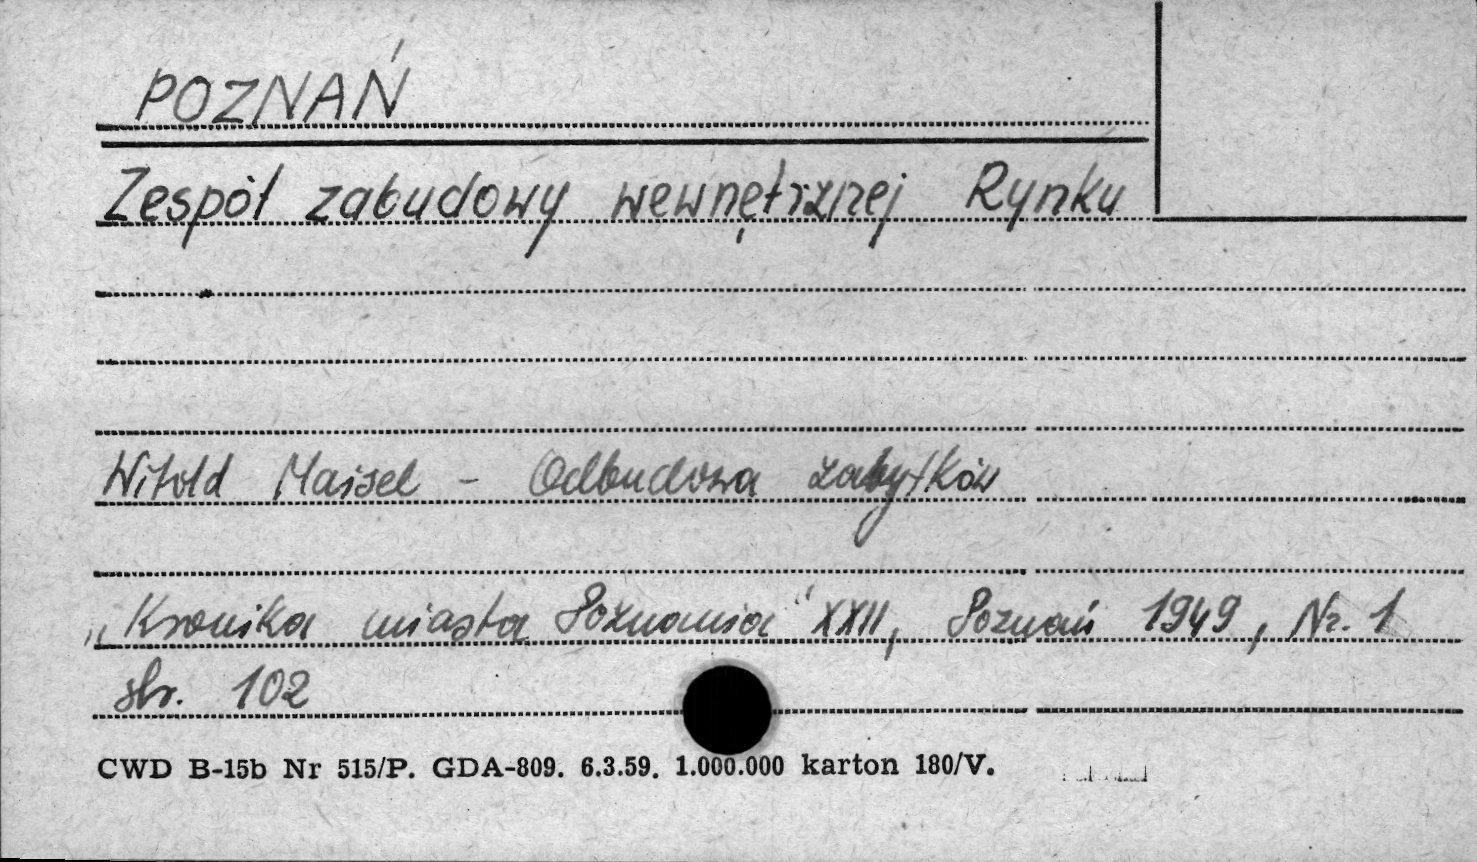 POZNAŃ
Zespół zabudowy wewnętrznej Rynku
Witold Maisel - Odbudowa zabytków
„Kronika miasta Poznania" XXII, Poznań 1949, Nr. 1
str. 102
CWD B-15b Nr 515/P. GDA-809. 6.3.59. 1.000.000 karton 180/V.